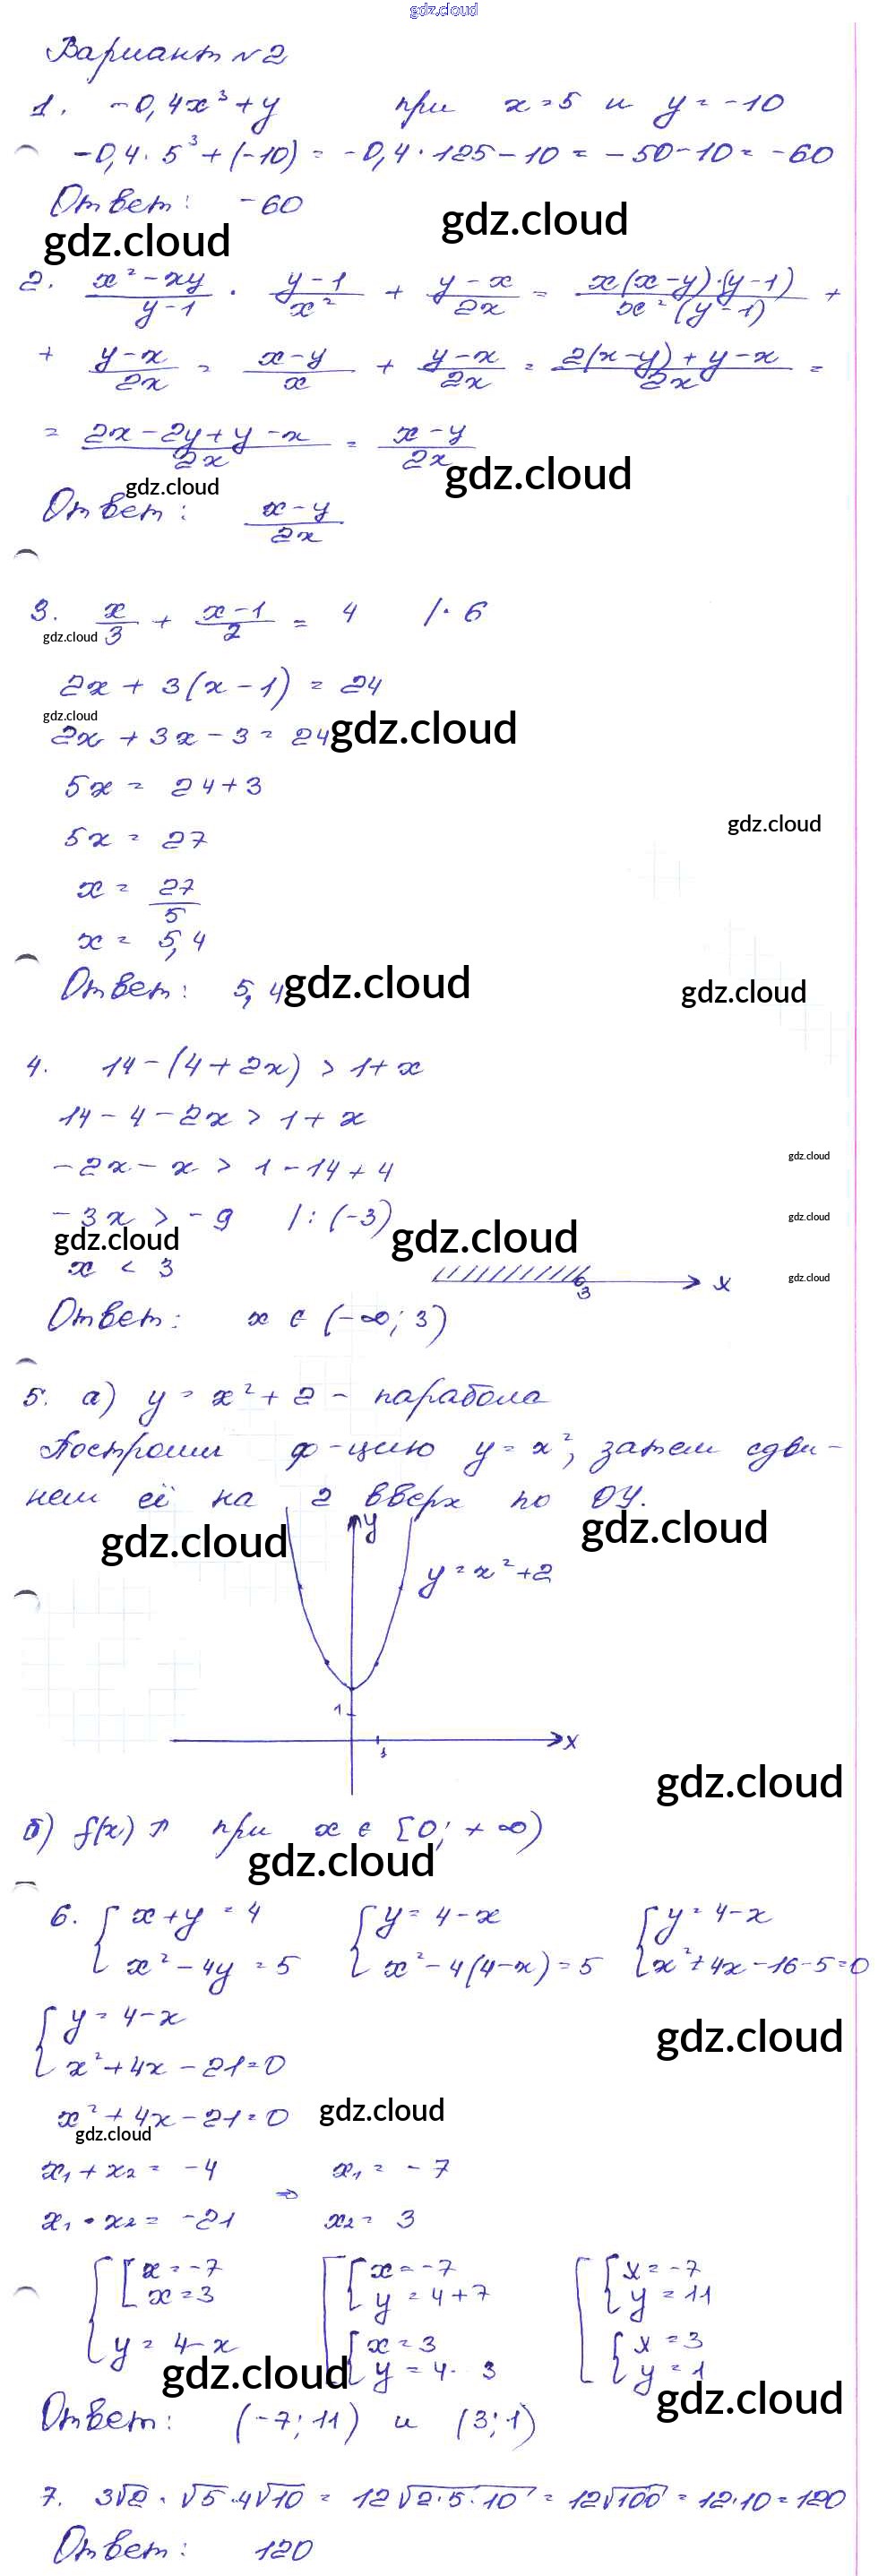 gdz.cloud
Вариант №2
1. -0,4x³+y при x=5 и y=-10
-0,4·5³+(-10)=-0,4·125-10=-50-10=-60
Ответ: -60
gdz.cloud
gdz.cloud
2. (x²-xy)/(y-1) · (y-1)/x² + (y-x)/2x = x(x-y)·(y-1)/x²(y-1) +
+ (y-x)/2x = (x-y)/x + (y-x)/2x = (2(x-y)+y-x)/2x =
= (2x-2y+y-x)/2x = (x-y)/2x
gdz.cloud
gdz.cloud
Ответ: (x-y)/2x
3. x/3 + (x-1)/2 = 4 /·6
gdz.cloud
2x+3(x-1)=24
gdz.cloud
2x+3x-3=24
gdz.cloud
5x=24+3
gdz.cloud
5x=27
x=27/5
x=5,4
Ответ: 5,4
gdz.cloud
gdz.cloud
4. 14-(4+2x)>1+x
14-4-2x>1+x
-2x-x>1-14+4
gdz.cloud
-3x>-9 /:(-3)
gdz.cloud
gdz.cloud
gdz.cloud
x<3
gdz.cloud
3 x
Ответ: x∈(-∞;3)
5. а) y=x²+2 - парабола
Построим ф-цию y=x², затем сдви-
нем её на 2 вверх по ОУ.
gdz.cloud
gdz.cloud
y
y=x²+2
1
1
x
gdz.cloud
б) f(x)↗ при x∈[0;+∞)
gdz.cloud
6. {x+y=4 {y=4-x {y=4-x
x²-4y=5 x²-4(4-x)=5 x²+4x-16-5=0
{y=4-x
gdz.cloud
x²+4x-21=0
x²+4x-21=0
gdz.cloud
gdz.cloud
x₁+x₂=-4 ⇒ x₁=-7
x₁·x₂=-21 x₂=3
{[x=-7 [{x=-7 [{x=-7
x=3 y=4+7 y=11
y=4-x {x=3 {x=3
y=4-3 y=1
gdz.cloud
gdz.cloud
Ответ: (-7;11) и (3;1)
7. 3√2·√5·4√10=12√2·5·10=12√100=12·10=120
Ответ: 120